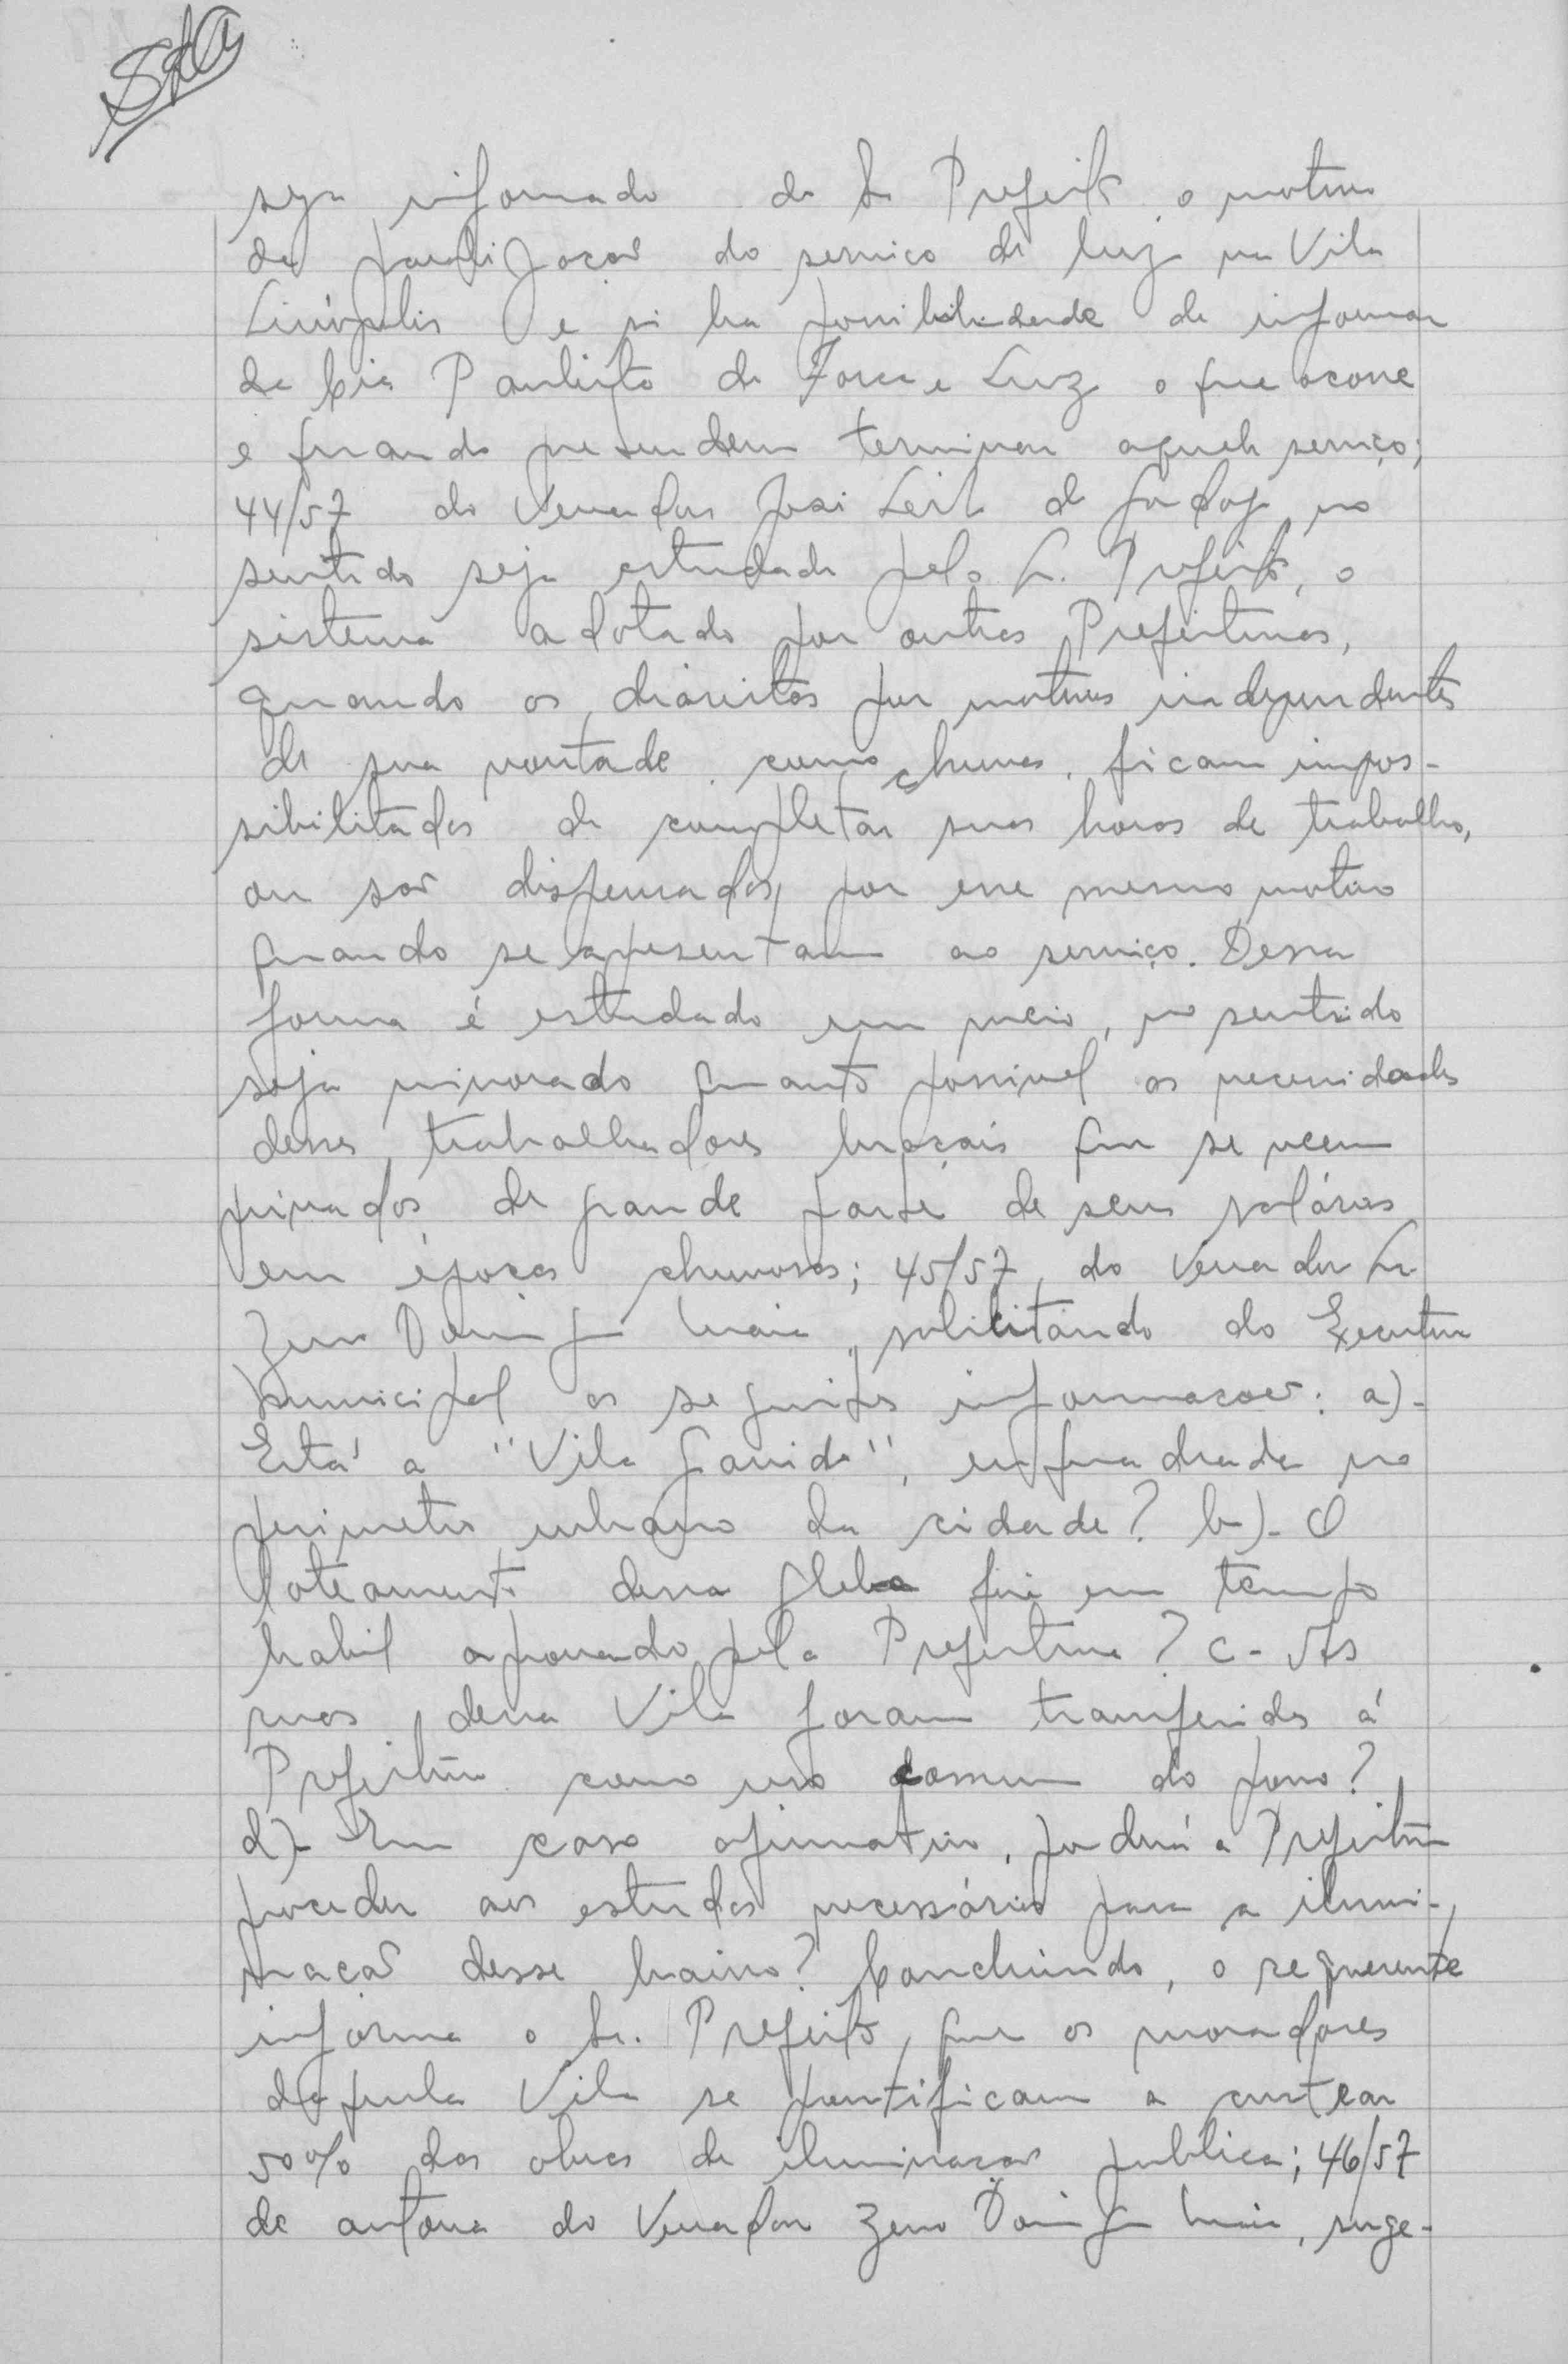 seja informado do Sr Prefeito o motivo
da paralizaçao do serviço de luz na Vila
Linópolis e si ha possibilidade de informar
da Cia Paulista de Força e Luz o que ocorre
e quando pretendem terminar aquele serviço;
44/57 do Vereador José Leite de Godoy, no
sentido seja estudado pelo Sr. Prefeito, o
sistema adotado por outras Prefeituras,
quando os diaristas por motivos independentes
de sua vontade como chuvas, ficam impos-
sibilitados de completar suas horas de trabalho,
ou são dispensados, por esse mesmo motivo
quando se apresentam ao serviço. Dessa
forma é estudado um meio, no sentido
seja minorado quanto possivel as necessidades
desses trabalhadores braçais que se veem
privados de grande parte de seus salários
em épocas chuvosas; 45/57, do Vereador Sr
Zeno Maia, solicitando do Executivo
Municipal as seguintes informaçoes: a)-
Está a "Vila Garrido", enquadrada no
perimetro urbano da cidade? b)- O
loteamento dessa gleba foi em tempo
habil aprovado pela Prefeitura? c- As
ruas dessa Vila foram transferidas á
Prefeitura como uso comum do povo?
d)- Em caso afirmativo, poderá a Prefeitura
proceder aos estudos necessários para a ilumi-
naçao desse bairro? Concluindo, o requerente
informa o Sr. Prefeito, que os moradores
daquela Vila se prontificam a custear
50% das obras de iluminaçao publica; 46/57
de autoria do Vereador Zeno Maia, suge-